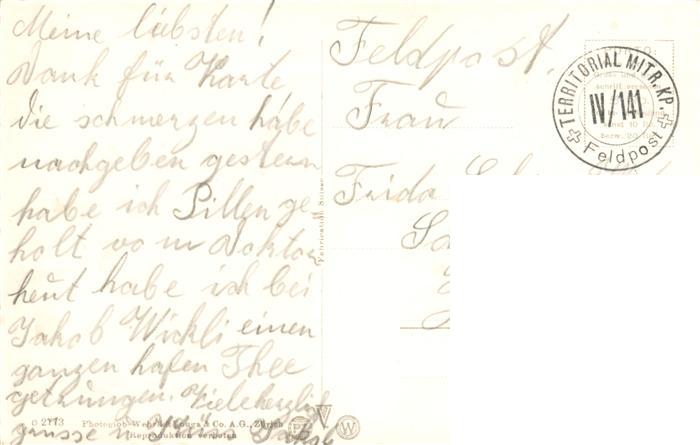 Meine läbsten!
Dank für Karte,
die schmerzen habe
nachgeben gestern
habe ich Pillen ge
holt vom Doktor
heut habe ich bei
Jakob Wickli einen
ganzen hafen Thee
getrungen. Viele herzlich
grüsse u Küss Jakob
Feldpost.
Frau
Frida
TERRITORIAL MITR. KP.
IV/141
Feldpost
Fabrication Suisse
o 2773 Photoglob-Wehrli & Vouga & Co. A.G., Zürich
Reproduktion verboten